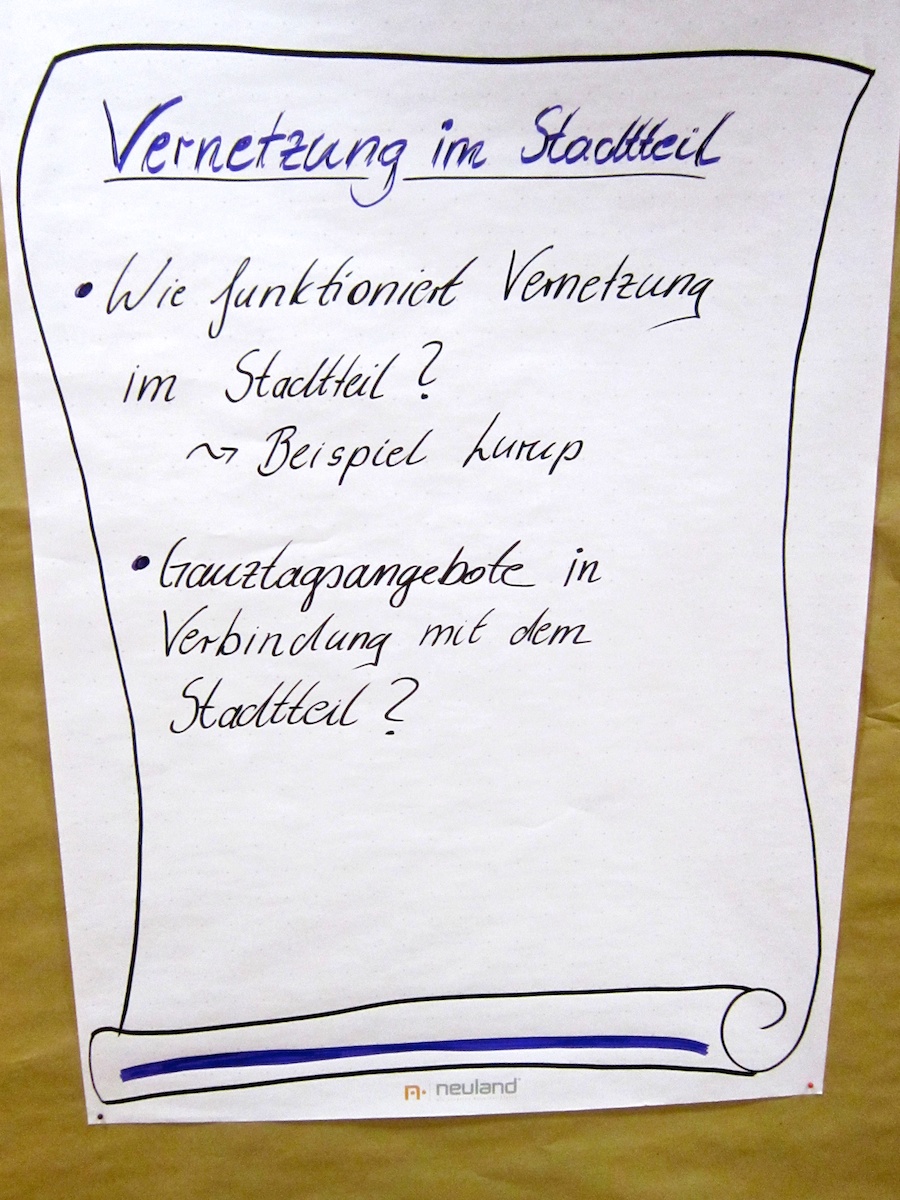 Vernetzung im Stadtteil
• Wie funktioniert Vernetzung
im Stadtteil?
↝ Beispiel Lurup
• Ganztagsangebote in
Verbindung mit dem
Stadtteil?
neuland